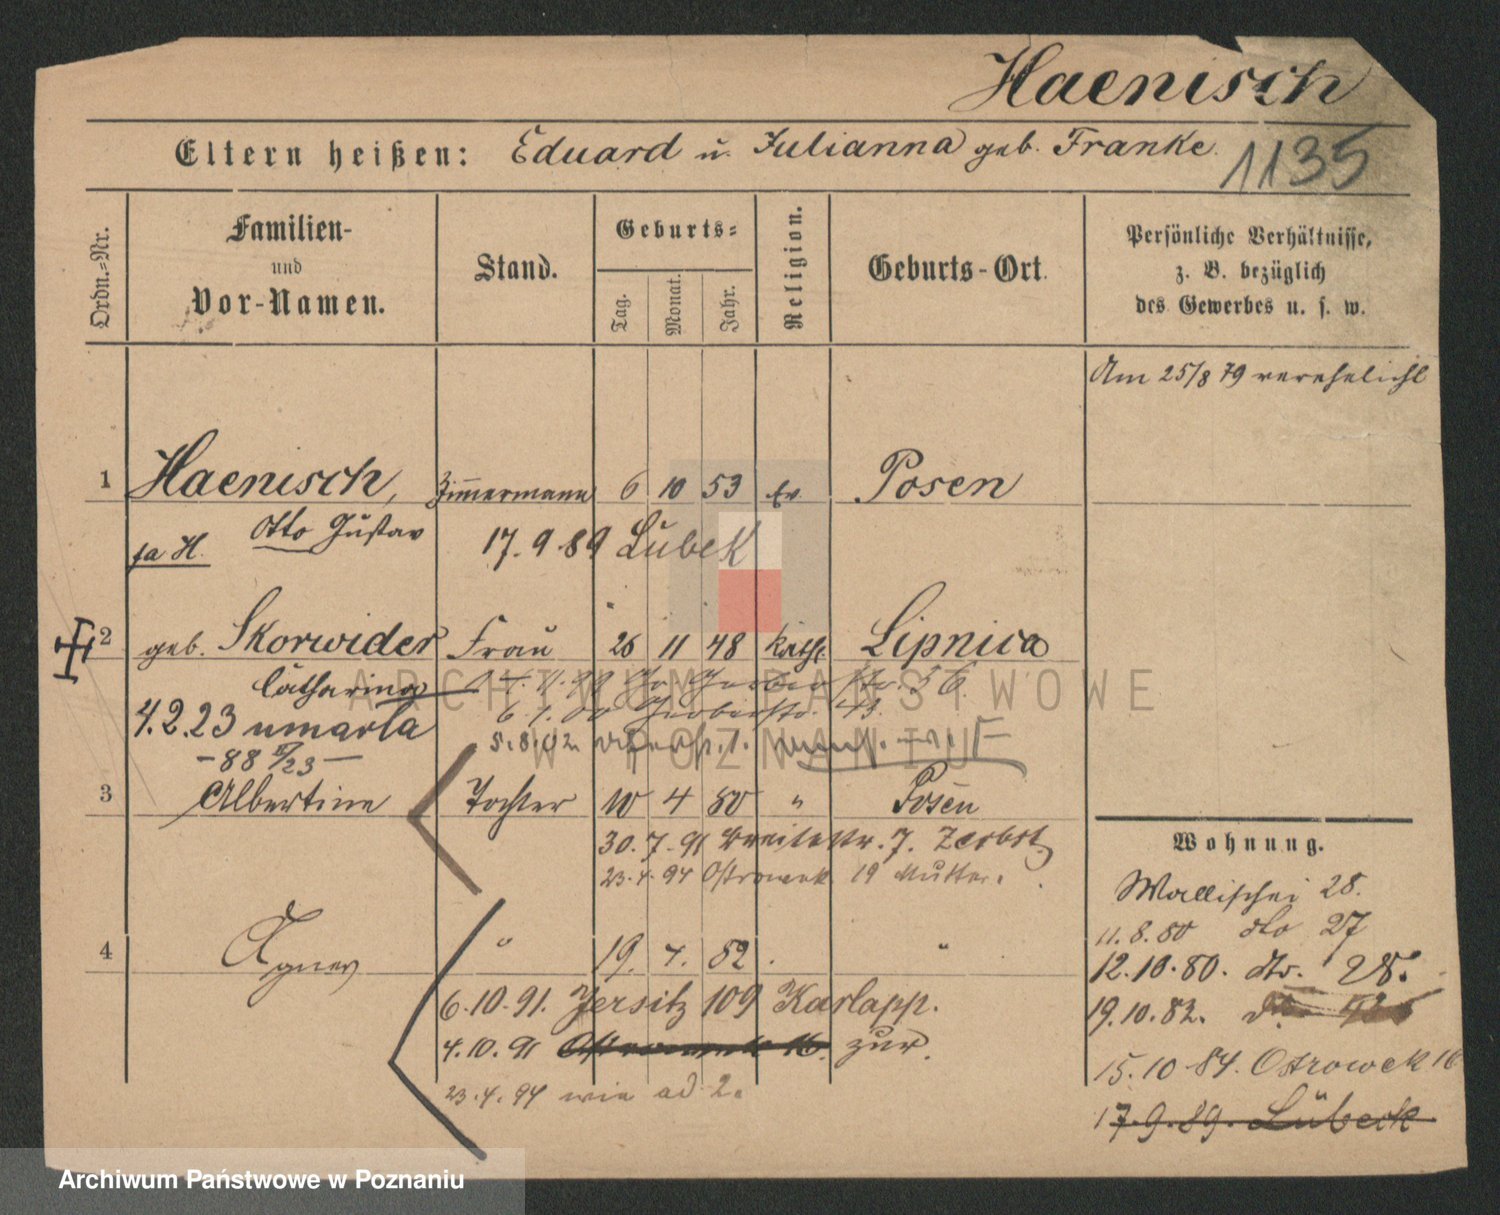 Haenisch
Eltern heißen: Eduard u. Julianna geb. Franke.
1135
Ordn.-Nr.
Familien-
und
Vor-Namen.
Stand.
Geburts-
Tag.
Monat.
Jahr.
Religion.
Geburts-Ort.
Persönliche Verhältnisse,
z. B. bezüglich
des Gewerbes u. s. w.
Am 25/8 79 verehelicht
1 Haenisch, Zimmermann 6 10 53 Ev. Posen
Otto Gustav
17.9.89 Lübek
2 geb. Skorwider Frau 26 11 48 Kath. Lipnica
Catharina
6.1.00 Gerberstr. 43.
4.2.23 umarła
5.8.02
-88 5/23-
3 Albertine Tochter 10 4 80 " Posen
30.7.91 Breitestr. 7. Zerbst
23.4.94 Ostrowek 19 Mutter.
4 Agnes " 19. 4. 82. "
6.10.91. Jersitz 109 Karlapp.
4.10.91 Ostrowek 16. zur.
23.4.94 wie ad 2.
Wohnung.
Wallischei 28.
11.8.80 do 27
12.10.80. do. 28.
19.10.82.
15.10.84. Ostrowek 16
17.9.89. Lübeck
ARCHIWUM PAŃSTWOWE
W POZNANIU
Archiwum Państwowe w Poznaniu